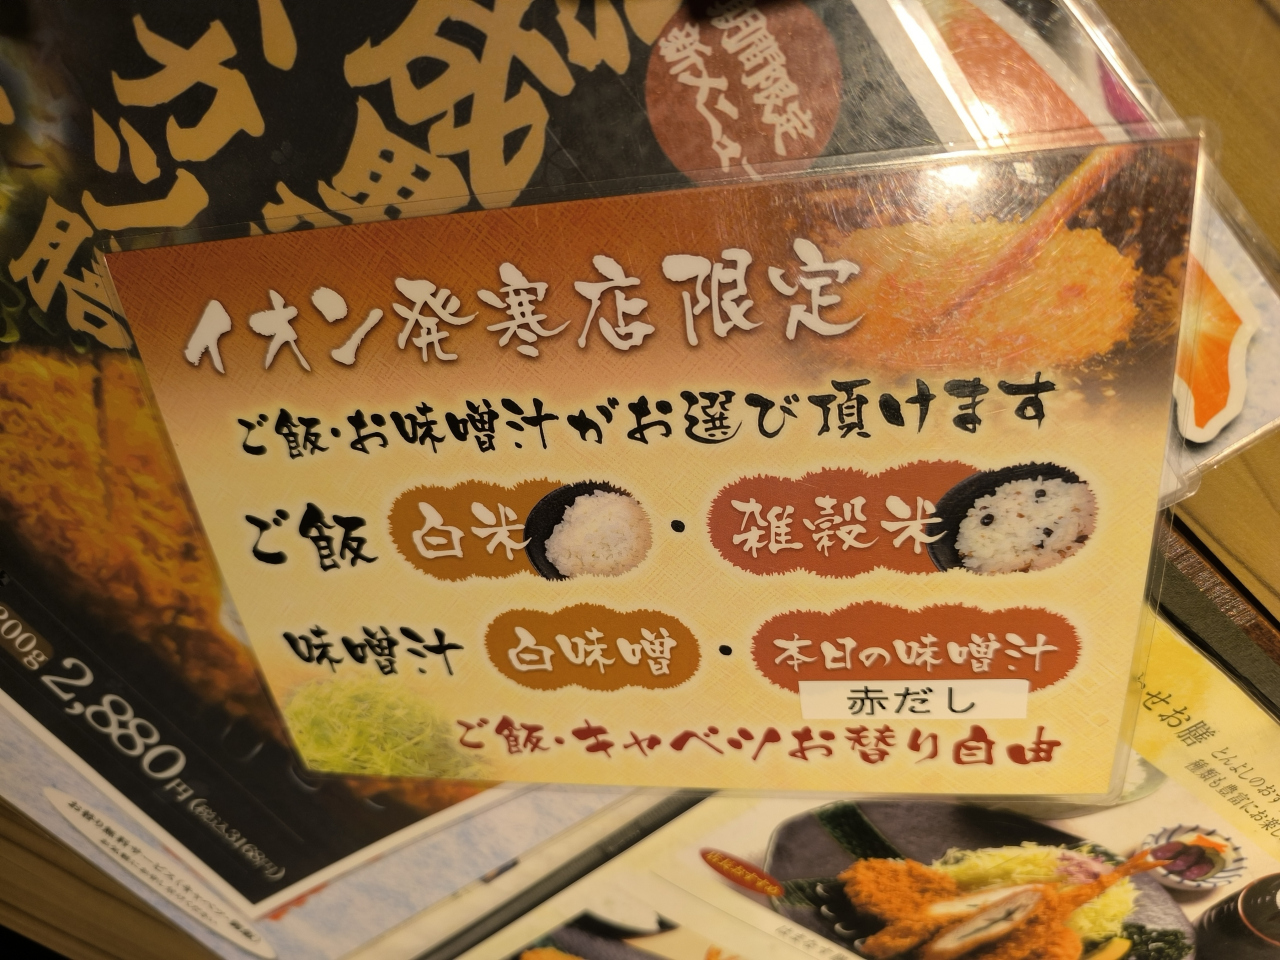 期間限定
イオン発寒店限定
ご飯・お味噌汁がお選び頂けます
ご飯 白米・雑穀米
味噌汁 白味噌・本日の味噌汁
赤だし
ご飯・キャベツお替り自由
200g
2,880円(税込3168円)
せお膳
とんよしのおす
種類も豊富にお楽し